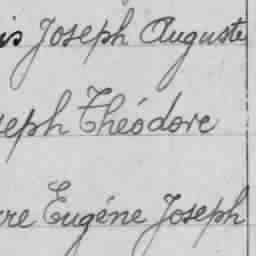 is Joseph Auguste
seph Théodore
re Eugéne Joseph